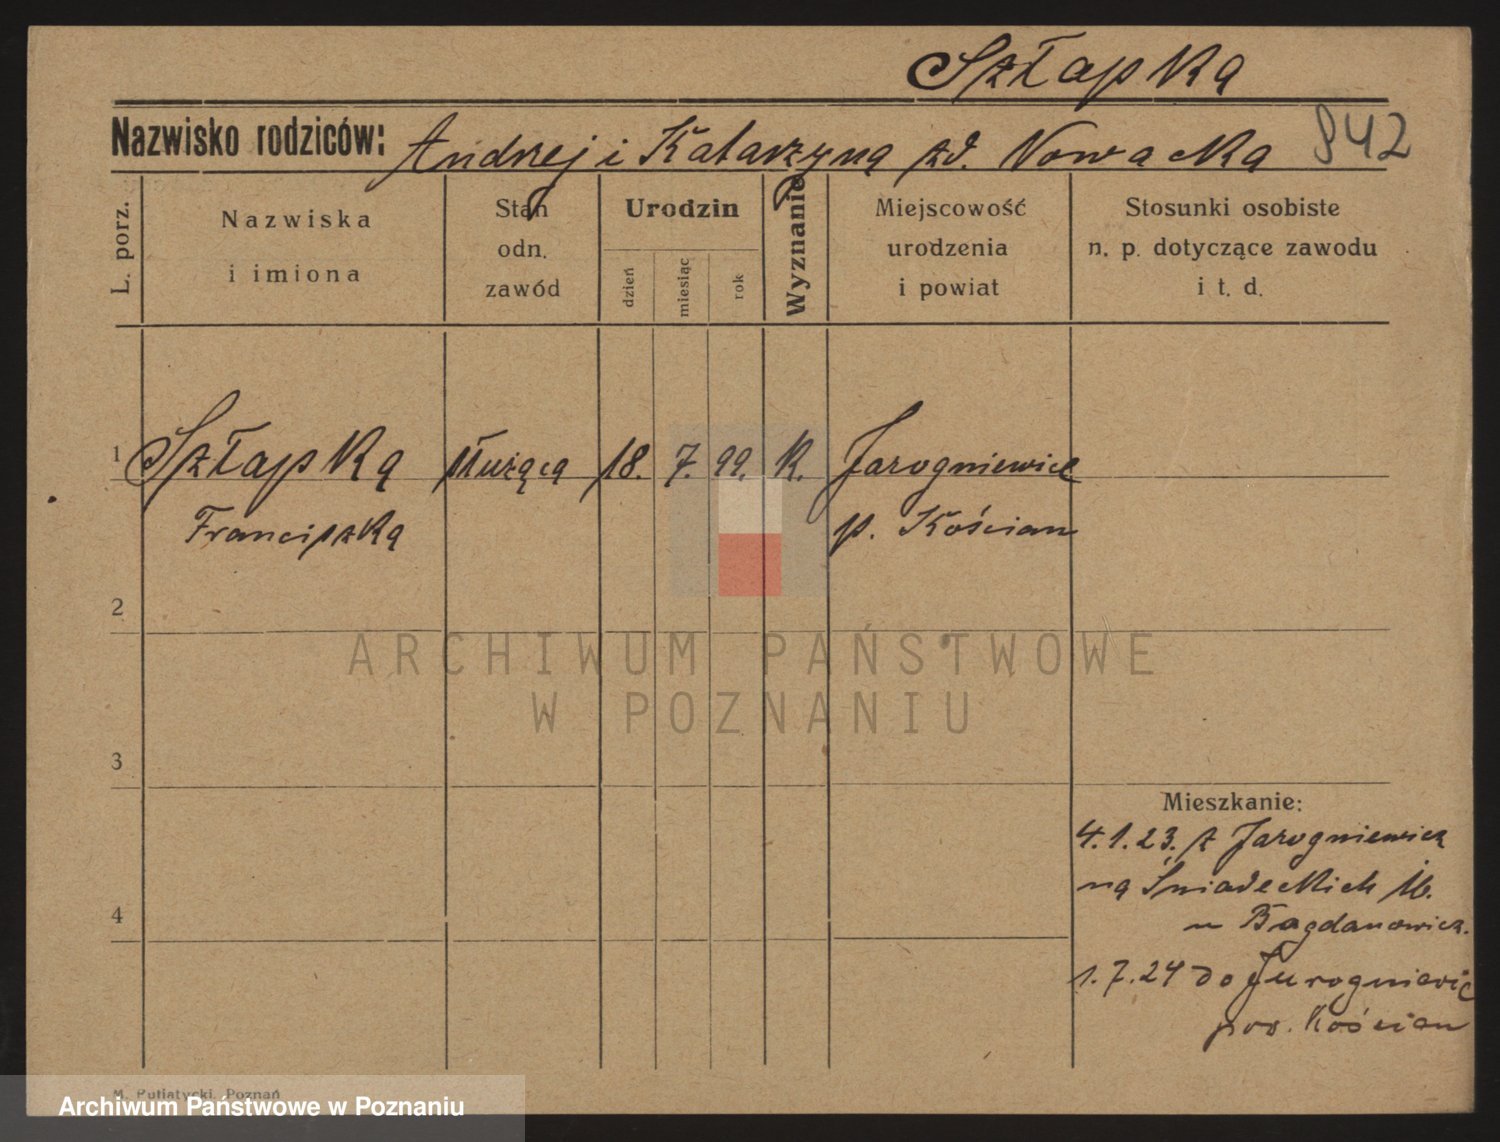 Szłapka
Nazwisko rodziców: Andrzej i Katarzyna zd. Nowacka 842
L. porz.
Nazwiska
i imiona
Stan
odn.
zawód
Urodzin
dzień
miesiąc
rok
Wyznanie
Miejscowość
urodzenia
i powiat
Stosunki osobiste
n. p. dotyczące zawodu
i t. d.
1 Szłapka służąca 18. 7. 99. K. Jarogniewice
Franciszka p. Kościan
2
ARCHIWUM PAŃSTWOWE
W POZNANIU
3
Mieszkanie:
4.1.23. z Jarogniewice
na Śniadeckich 16.
u Bagdanowicz.
4
1.7.24 do Jurogniewic
pow. Kościan
M. Putiatycki, Poznań
Archiwum Państwowe w Poznaniu